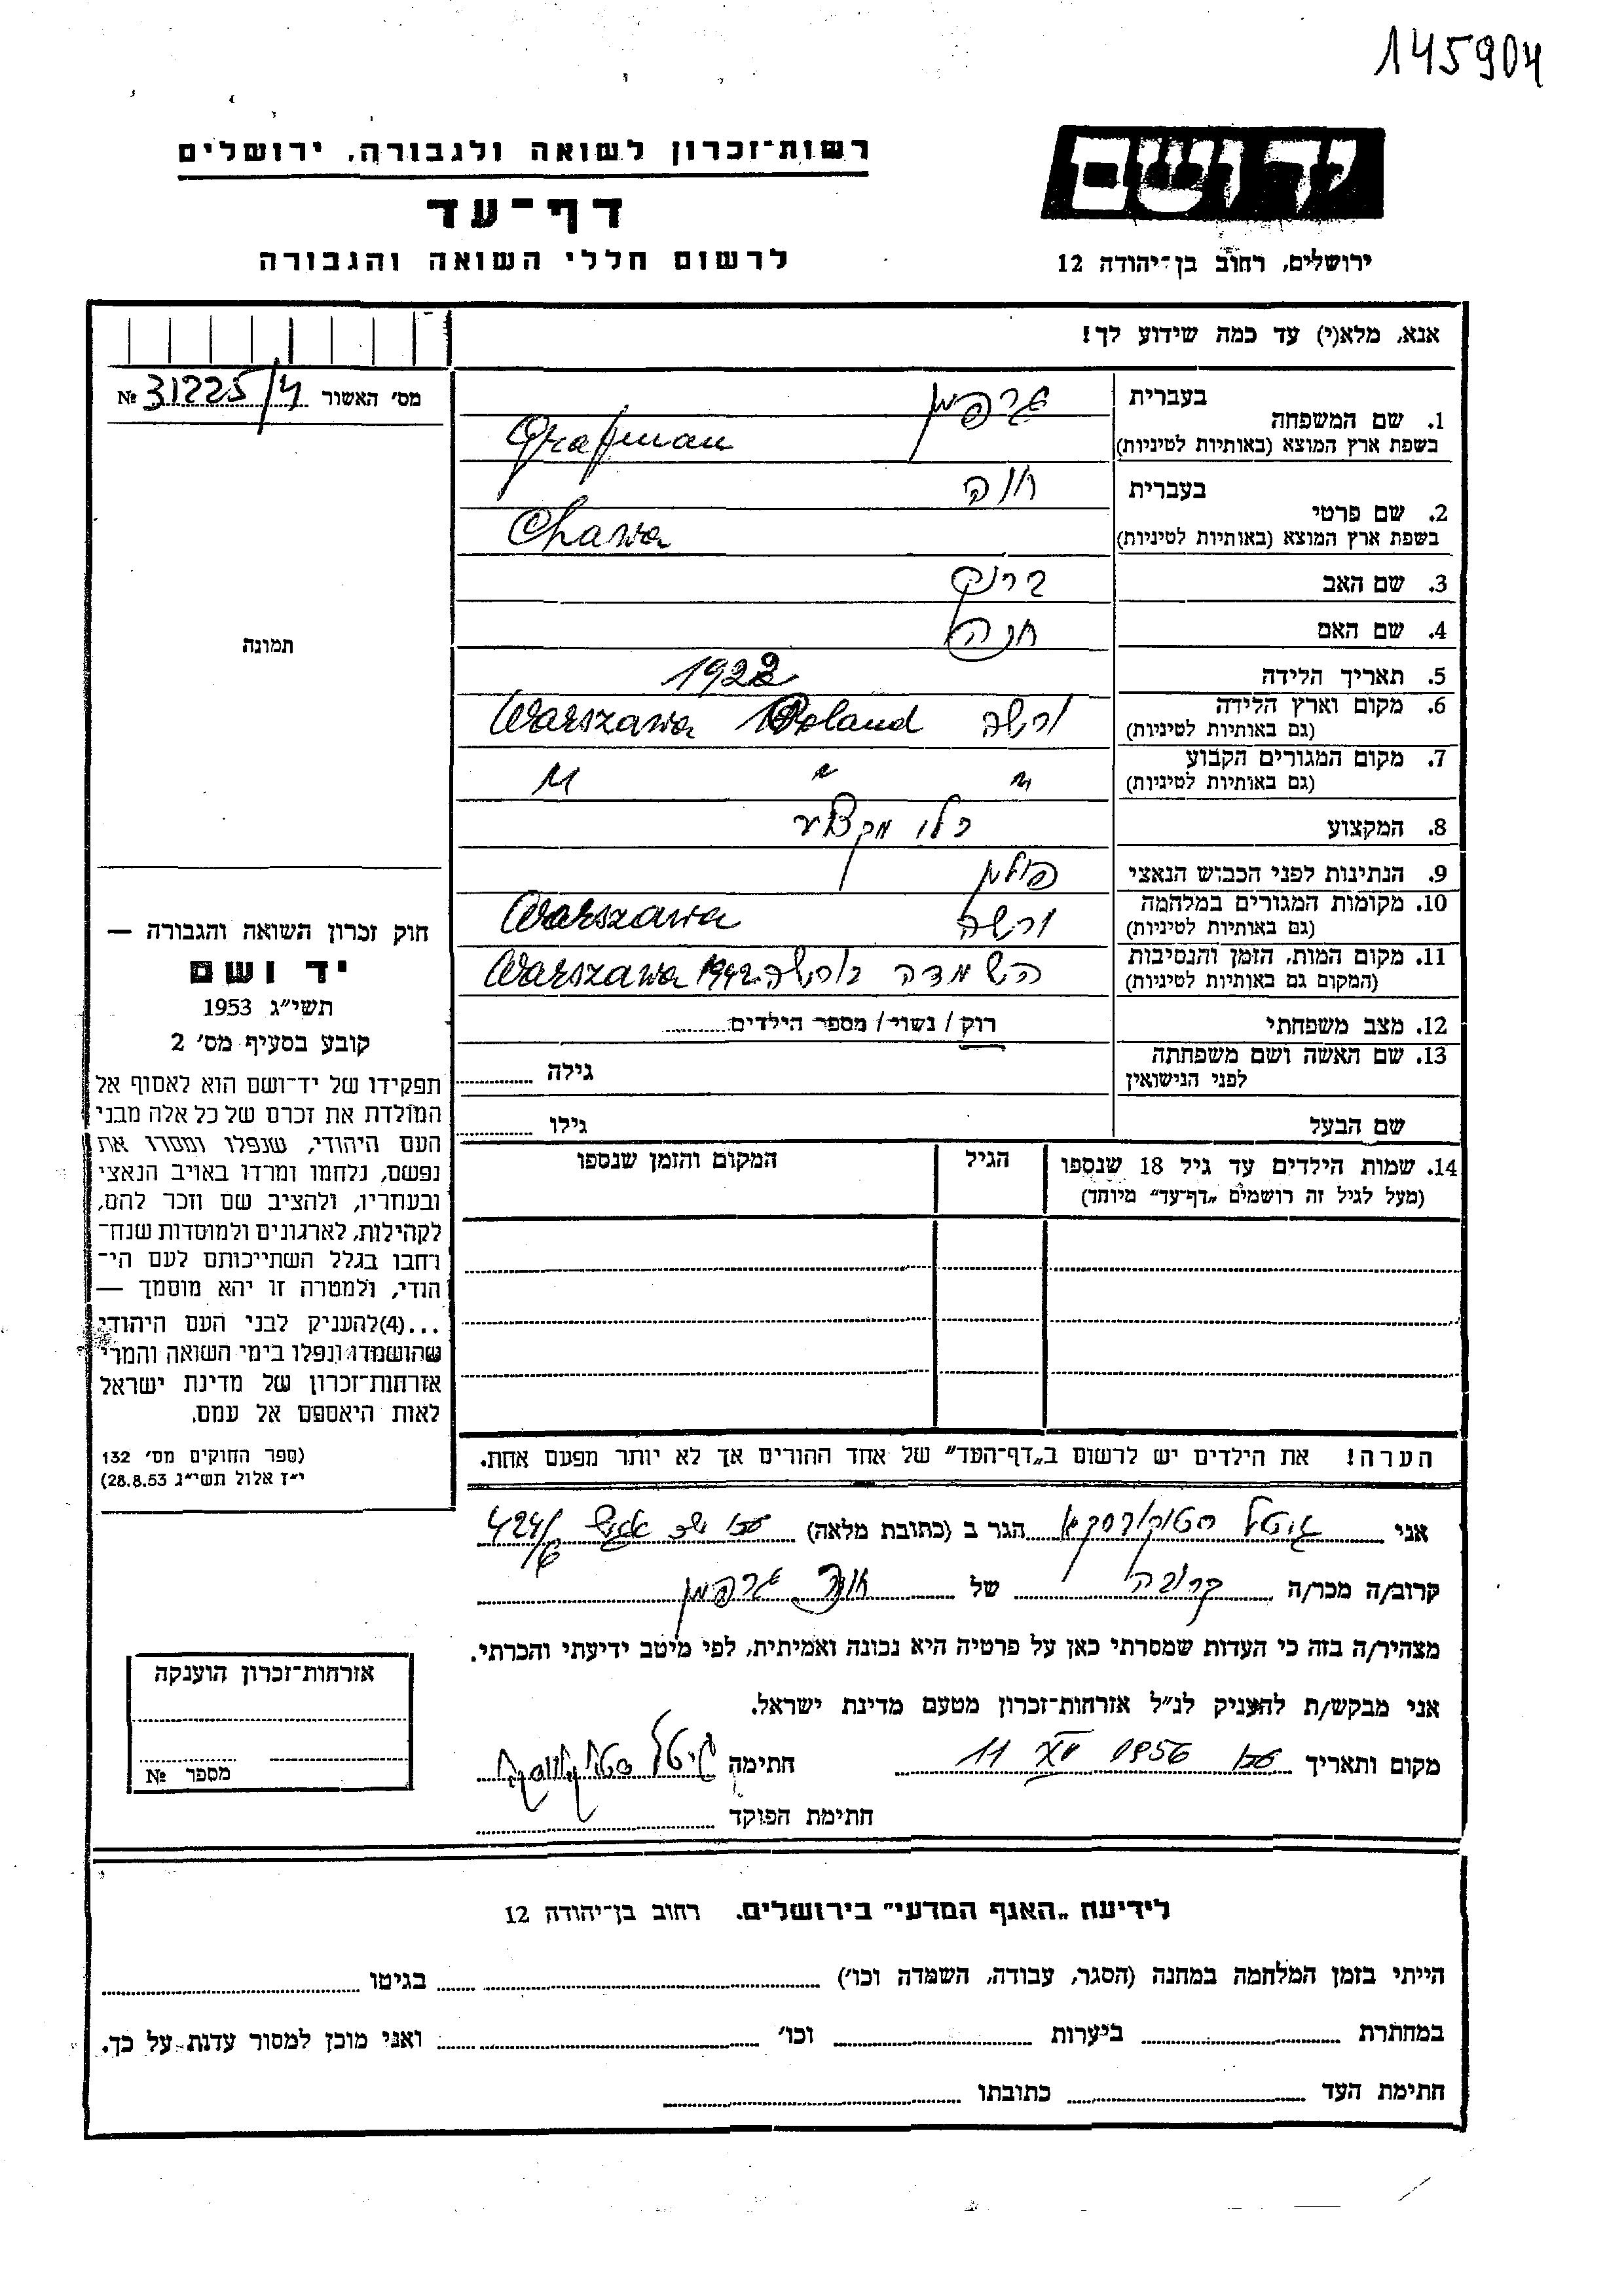 145904
רשות־זכרון לשואה ולגבורה, ירושלים
ידושם
דף־עד
ירושלים, רחוב בן־יהודה 12
לרשום חללי השואה והגבורה
אנא, מלא(י) עד כמה שידוע לך!
מס׳ האשור № 31225/4
תמונה
1. שם המשפחה
בעברית גרפמן
בשפת ארץ המוצא (באותיות לטיניות) Grafman
2. שם פרטי
בעברית חוה
בשפת ארץ המוצא (באותיות לטיניות) Chawa
3. שם האב ברוך
4. שם האם חנה
5. תאריך הלידה 1922
6. מקום וארץ הלידה ורשה Warszawa Poland
(גם באותיות לטיניות)
7. מקום המגורים הקבוע " " "
(גם באותיות לטיניות)
8. המקצוע בלי מקצוע
9. הנתינות לפני הכבוש הנאצי פולין
10. מקומות המגורים במלחמה ורשה Warszawa
(גם באותיות לטיניות)
11. מקום המות, הזמן והנסיבות השמדה בורשה 1942 Warszawa
(המקום גם באותיות לטיניות)
12. מצב משפחתי רוק / נשוי / מספר הילדים
13. שם האשה ושם משפחתה גילה
לפני הנישואין
שם הבעל גילו
14. שמות הילדים עד גיל 18 שנספו הגיל המקום והזמן שנספו
(מעל לגיל זה רושמים „דף־עד״ מיוחד)
הערה! את הילדים יש לרשום ב„דף־העד״ של אחד ההורים אך לא יותר מפעם אחת.
חוק זכרון השואה והגבורה —
יד ושם
תשי״ג 1953
קובע בסעיף מס׳ 2
תפקידו של יד־ושם הוא לאסוף אל
המולדת את זכרם של כל אלה מבני
העם היהודי, שנפלו ומסרו את
נפשם, נלחמו ומרדו באויב הנאצי
ובעוזריו, ולהציב שם וזכר להם,
לקהילות, לארגונים ולמוסדות שנח־
רבו בגלל השתייכותם לעם הי־
הודי, ולמטרה זו יהא מוסמך —
...(4)להעניק לבני העם היהודי
שהושמדו ונפלו בימי השואה והמרי
אזרחות־זכרון של מדינת ישראל
לאות היאספם אל עמם.
(ספר החוקים מס׳ 132
י״ז אלול תשי״ג 28.8.53)
אני גיטל הגר ב (כתובת מלאה) 424/6
קרוב/ה מכר/ה קרובה של חוה גרפמן
מצהיר/ה בזה כי העדות שמסרתי כאן על פרטיה היא נכונה ואמיתית, לפי מיטב ידיעתי והכרתי.
אני מבקש/ת להעניק לנ״ל אזרחות־זכרון מטעם מדינת ישראל.
מקום ותאריך 1956 11 חתימה גיטל
חתימת הפוקד
אזרחות־זכרון הוענקה
מספר №
לידיעת „האגף המדעי״ בירושלים. רחוב בן־יהודה 12
הייתי בזמן המלחמה במחנה (הסגר, עבודה, השמדה וכו׳) בגיטו
במחתרת ביערות וכו׳ ואני מוכן למסור עדות על כך.
חתימת העד כתובתו